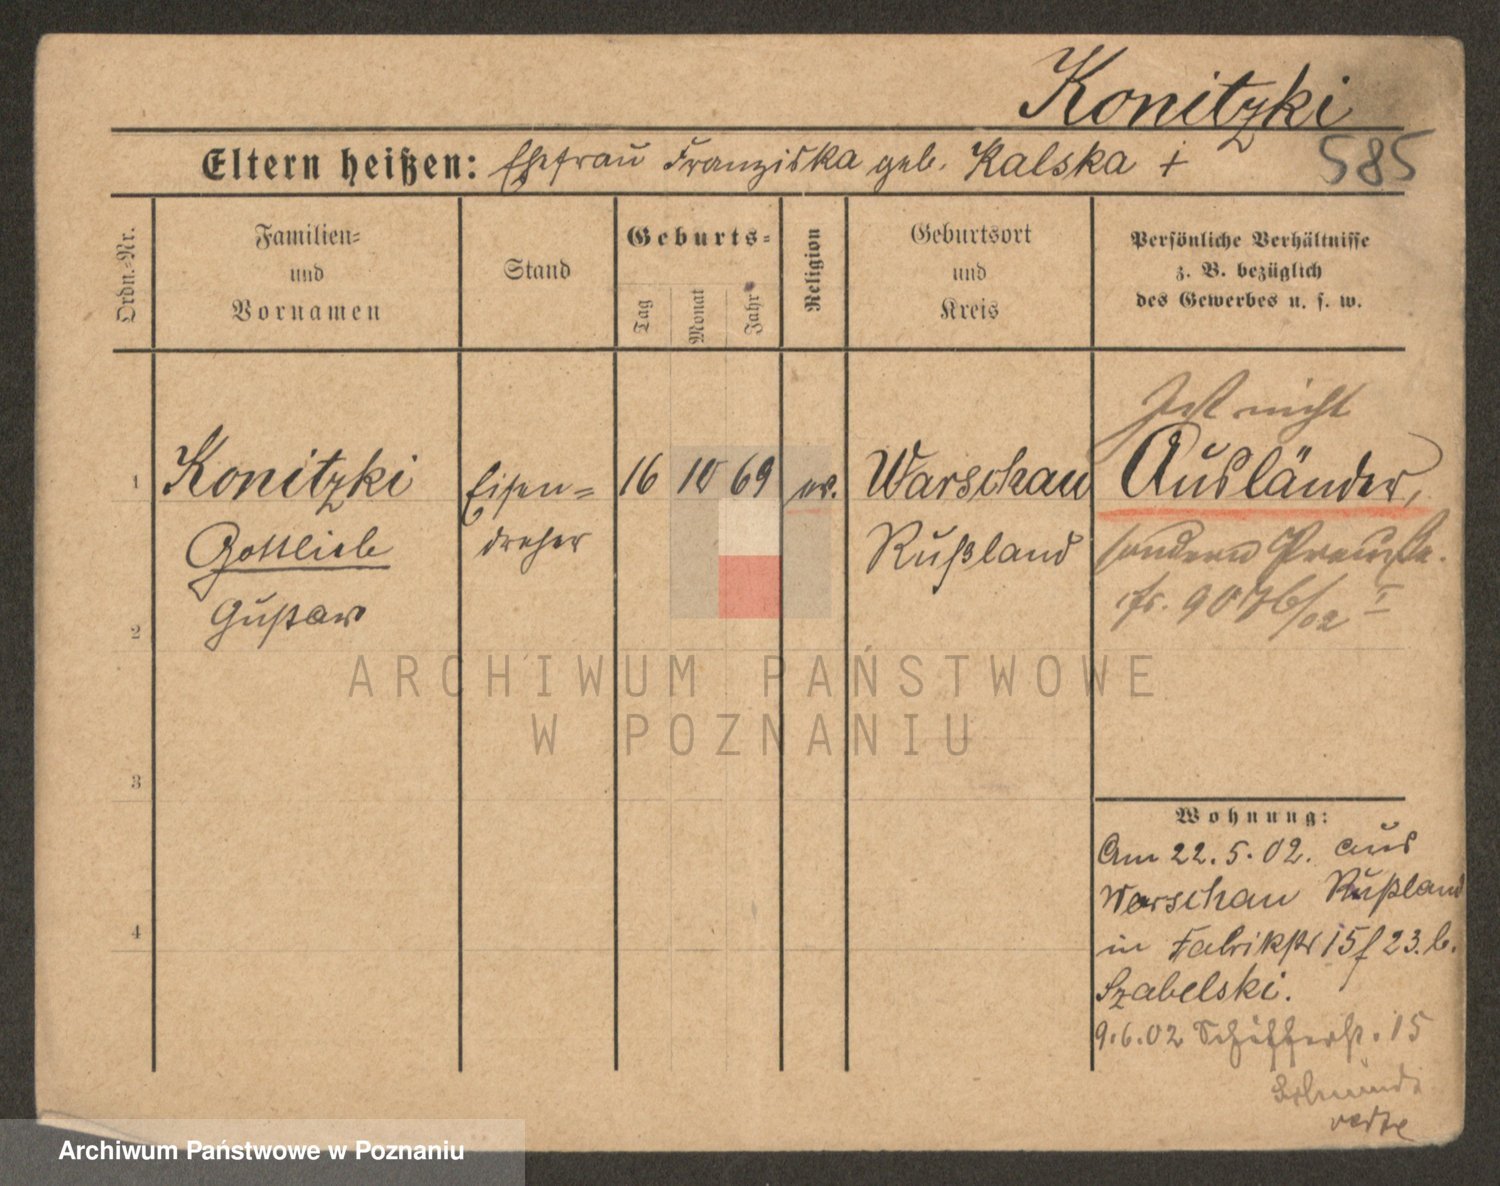 Konitzki
585
Eltern heißen: Ehefrau Franziska geb. Kalska +
Ordn.-Nr.
Familien-
und
Vornamen
Stand
Geburts-
Tag
Monat
Jahr
Religion
Geburtsort
und
Kreis
Persönliche Verhältnisse
z. B. bezüglich
des Gewerbes u. s. w.
Ist nicht
1 Konitzki Eisen- 16 10 69 ev. Warschau Ausländer,
Gottlieb dreher Rußland sondern
2 Gustav
3
4
Wohnung:
Am 22.5.02. aus
Warschau Rußland
in Fabrikstr 15 f 23. b.
Szabelski.
9.6.02 Schifferstr. 15
ARCHIWUM PAŃSTWOWE
W POZNANIU
Archiwum Państwowe w Poznaniu